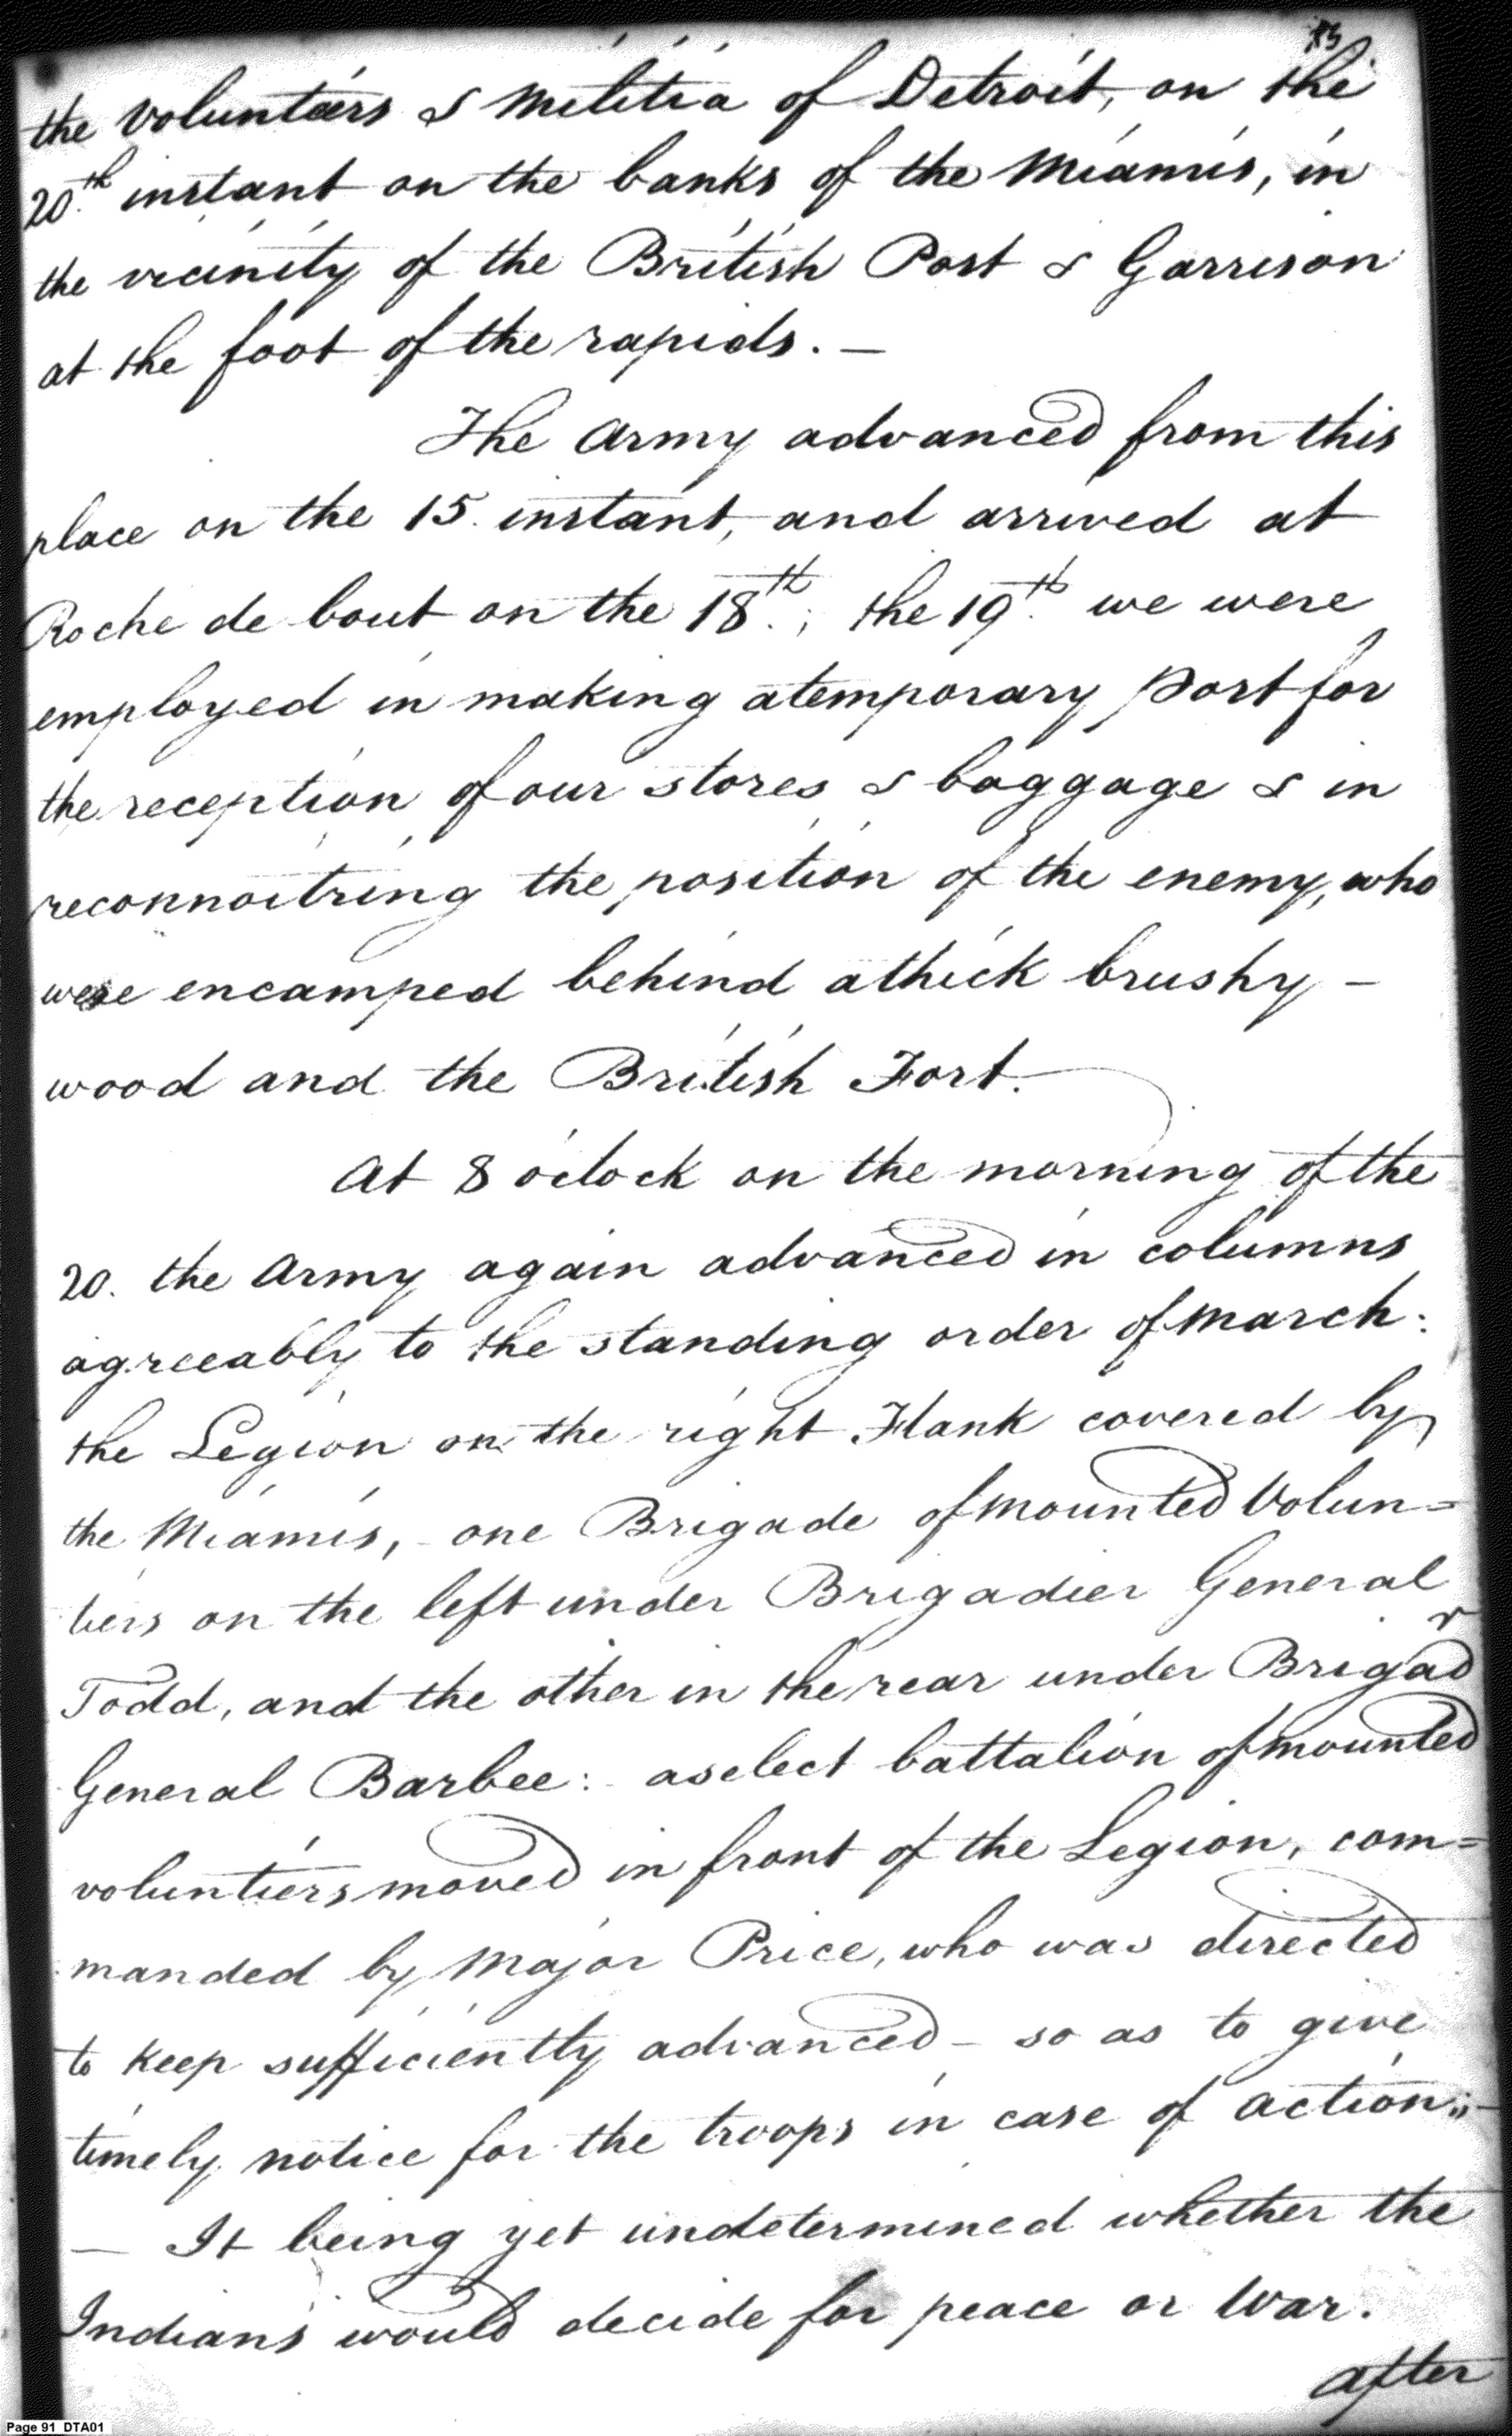 the volunteers & Militia of Detroit, on the
20.th instant on the banks of the Miamis, in
the vicinity of the British Post & Garrison
at the foot of the rapids. —
The Army advanced from this
place on the 15. instant, and arrived at
Roche de bout on the 18.th; the 19.th we were
employed in making atemporary post for
the reception of our stores & baggage & in
reconnoitring the position of the enemy, who
were encamped behind athick brushy —
wood and the British Fort.
At 8 oclock on the morning of the
20. the Army again advanced in columns
agreeably to the standing order of march:
the Legion on the right Flank covered by
the Miamis, - one Brigade of mounted Volun=
tiers on the left under Brigadier General
Todd, and the other in the rear under Brigadr
General Barbee: aselect battalion of mounted
voluntiers moved in front of the Legion, com=
manded by Major Price, who was directed
to keep sufficiently advanced — so as to give
timely notice for the troops in case of action; —
— It being yet undetermined whether the
Indians would decide for peace or War.
after
Page 91 DTA01